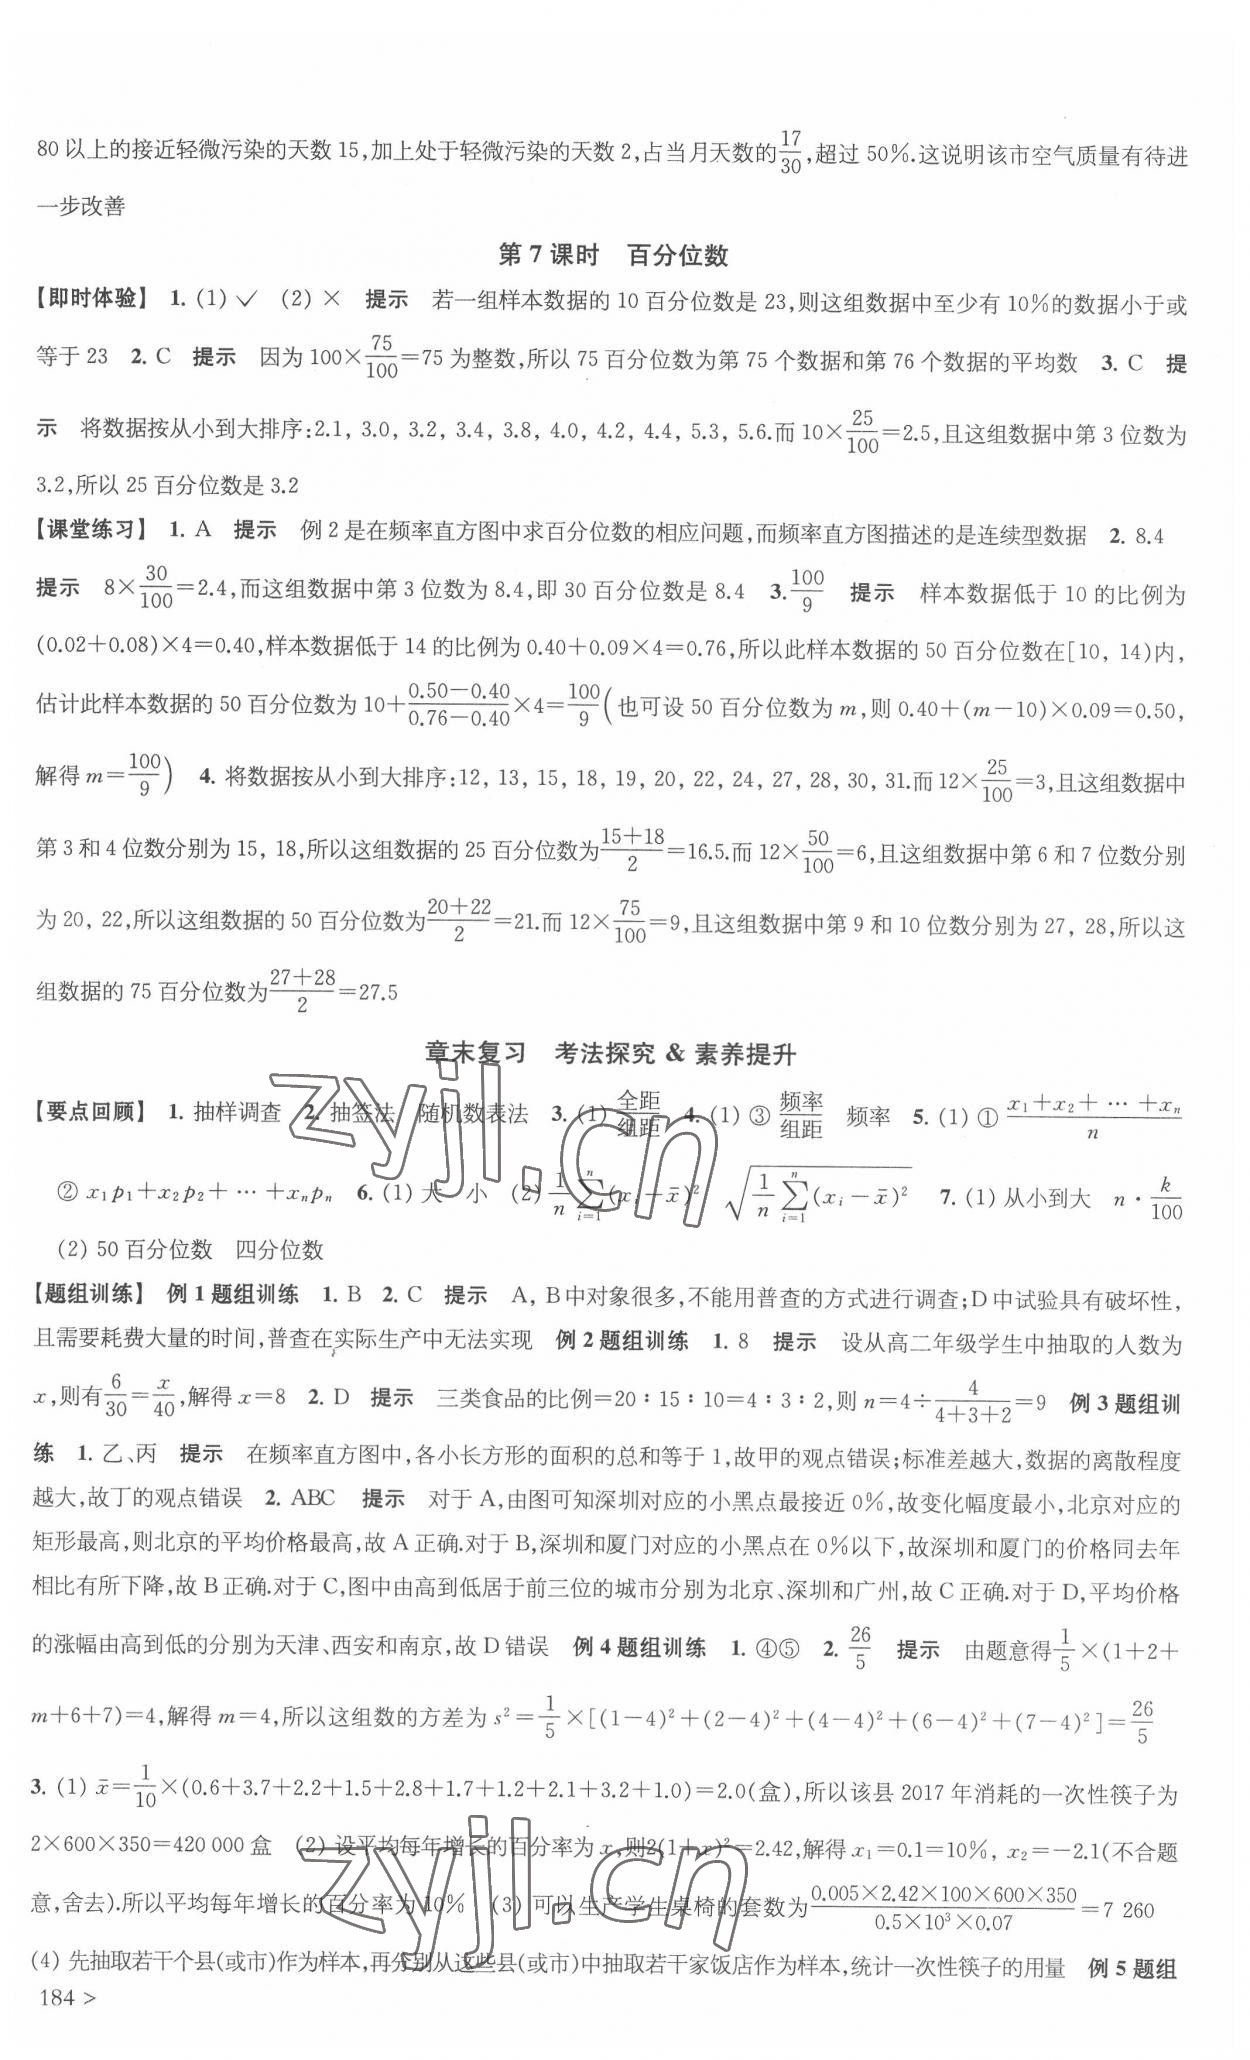 80 以上的接近轻微污染的天数 15,加上处于轻微污染的天数 2,占当月天数的17/30,超过 50%.这说明该市空气质量有待进
一步改善
第 7 课时　百分位数
【即时体验】 1. (1) ✓ (2) × 提示 若一组样本数据的 10 百分位数是 23,则这组数据中至少有 10%的数据小于或
等于 23 2. C 提示 因为 100×75/100=75 为整数,所以 75 百分位数为第 75 个数据和第 76 个数据的平均数 3. C 提
示 将数据按从小到大排序:2.1, 3.0, 3.2, 3.4, 3.8, 4.0, 4.2, 4.4, 5.3, 5.6.而 10×25/100=2.5,且这组数据中第 3 位数为
3.2,所以 25 百分位数是 3.2
【课堂练习】 1. A 提示 例 2 是在频率直方图中求百分位数的相应问题,而频率直方图描述的是连续型数据 2. 8.4
提示 8×30/100=2.4,而这组数据中第 3 位数为 8.4,即 30 百分位数是 8.4 3. 100/9 提示 样本数据低于 10 的比例为
(0.02+0.08)×4=0.40,样本数据低于 14 的比例为 0.40+0.09×4=0.76,所以此样本数据的 50 百分位数在[10, 14)内,
估计此样本数据的 50 百分位数为 10+(0.50-0.40)/(0.76-0.40)×4=100/9(也可设 50 百分位数为 m,则 0.40+(m-10)×0.09=0.50,
解得 m=100/9) 4. 将数据按从小到大排序:12, 13, 15, 18, 19, 20, 22, 24, 27, 28, 30, 31.而 12×25/100=3,且这组数据中
第 3 和 4 位数分别为 15, 18,所以这组数据的 25 百分位数为(15+18)/2=16.5.而 12×50/100=6,且这组数据中第 6 和 7 位数分别
为 20, 22,所以这组数据的 50 百分位数为(20+22)/2=21.而 12×75/100=9,且这组数据中第 9 和 10 位数分别为 27, 28,所以这
组数据的 75 百分位数为(27+28)/2=27.5
章末复习　考法探究 & 素养提升
【要点回顾】 1. 抽样调查 2. 抽签法 随机数表法 3. (1) 全距/组距 4. (1) ③ 频率/组距 频率 5. (1) ① (x₁+x₂+⋯+xₙ)/n
② x₁p₁+x₂p₂+⋯+xₙpₙ 6. (1) 大 小 (2) 1/n ∑ⁿᵢ₌₁(xᵢ-x̄)² √(1/n ∑ⁿᵢ₌₁(xᵢ-x̄)²) 7. (1) 从小到大 n·k/100
(2) 50 百分位数 四分位数
【题组训练】 例 1 题组训练 1. B 2. C 提示 A, B 中对象很多,不能用普查的方式进行调查;D 中试验具有破坏性,
且需要耗费大量的时间,普查在实际生产中无法实现 例 2 题组训练 1. 8 提示 设从高二年级学生中抽取的人数为
x,则有6/30=x/40,解得 x=8 2. D 提示 三类食品的比例=20∶15∶10=4∶3∶2,则 n=4÷4/(4+3+2)=9 例 3 题组训
练 1. 乙、丙 提示 在频率直方图中,各小长方形的面积的总和等于 1,故甲的观点错误;标准差越大,数据的离散程度
越大,故丁的观点错误 2. ABC 提示 对于 A,由图可知深圳对应的小黑点最接近 0%,故变化幅度最小,北京对应的
矩形最高,则北京的平均价格最高,故 A 正确.对于 B,深圳和厦门对应的小黑点在 0%以下,故深圳和厦门的价格同去年
相比有所下降,故 B 正确.对于 C,图中由高到低居于前三位的城市分别为北京、深圳和广州,故 C 正确.对于 D,平均价格
的涨幅由高到低的分别为天津、西安和南京,故 D 错误 例 4 题组训练 1. ④⑤ 2. 26/5 提示 由题意得1/5×(1+2+
m+6+7)=4,解得 m=4,所以这组数的方差为 s²=1/5×[(1-4)²+(2-4)²+(4-4)²+(6-4)²+(7-4)²]=26/5
3. (1) x̄=1/10×(0.6+3.7+2.2+1.5+2.8+1.7+1.2+2.1+3.2+1.0)=2.0(盒),所以该县 2017 年消耗的一次性筷子为
2×600×350=420 000 盒 (2) 设平均每年增长的百分率为 x,则2(1+x)²=2.42,解得 x₁=0.1=10%, x₂=-2.1(不合题
意,舍去).所以平均每年增长的百分率为 10% (3) 可以生产学生桌椅的套数为(0.005×2.42×100×600×350)/(0.5×10³×0.07)=7 260
(4) 先抽取若干个县(或市)作为样本,再分别从这些县(或市)中抽取若干家饭店作为样本,统计一次性筷子的用量 例 5 题组
184 >
zyjl.cn
zyjl.cn